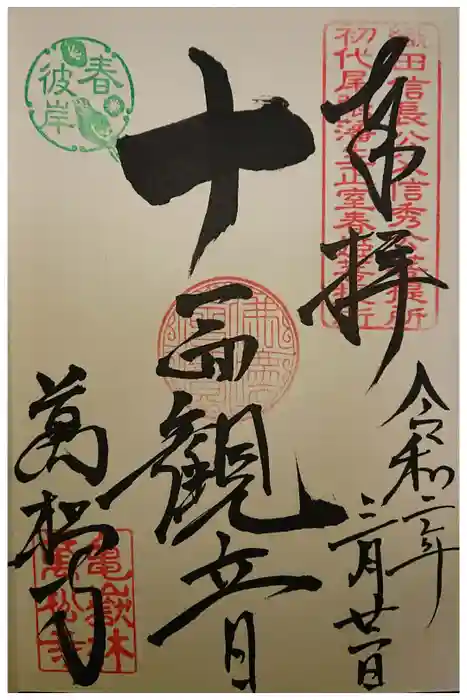 織田信長公父信秀公菩提所
初代尾張藩主正室春姫菩提所
奉拝
令和二年
三月廿一日
十一面観音
春
彼岸
萬松寺
亀嶽林
萬松寺